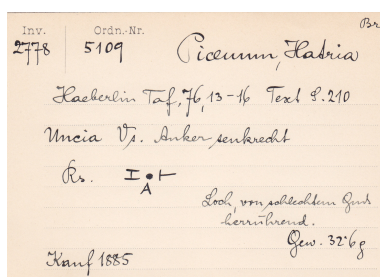 Inv. Ordn.-Nr. Br
2778 5109 Picenum, Hatria
Haeberlin Taf. 76, 13-16 Text S. 210
Uncia Vs. Anker senkrecht
Rs. I • ⊢
A
Loch, von schlechtem Guß
herrührend.
Gew. 32·6 g
Kauf 1885